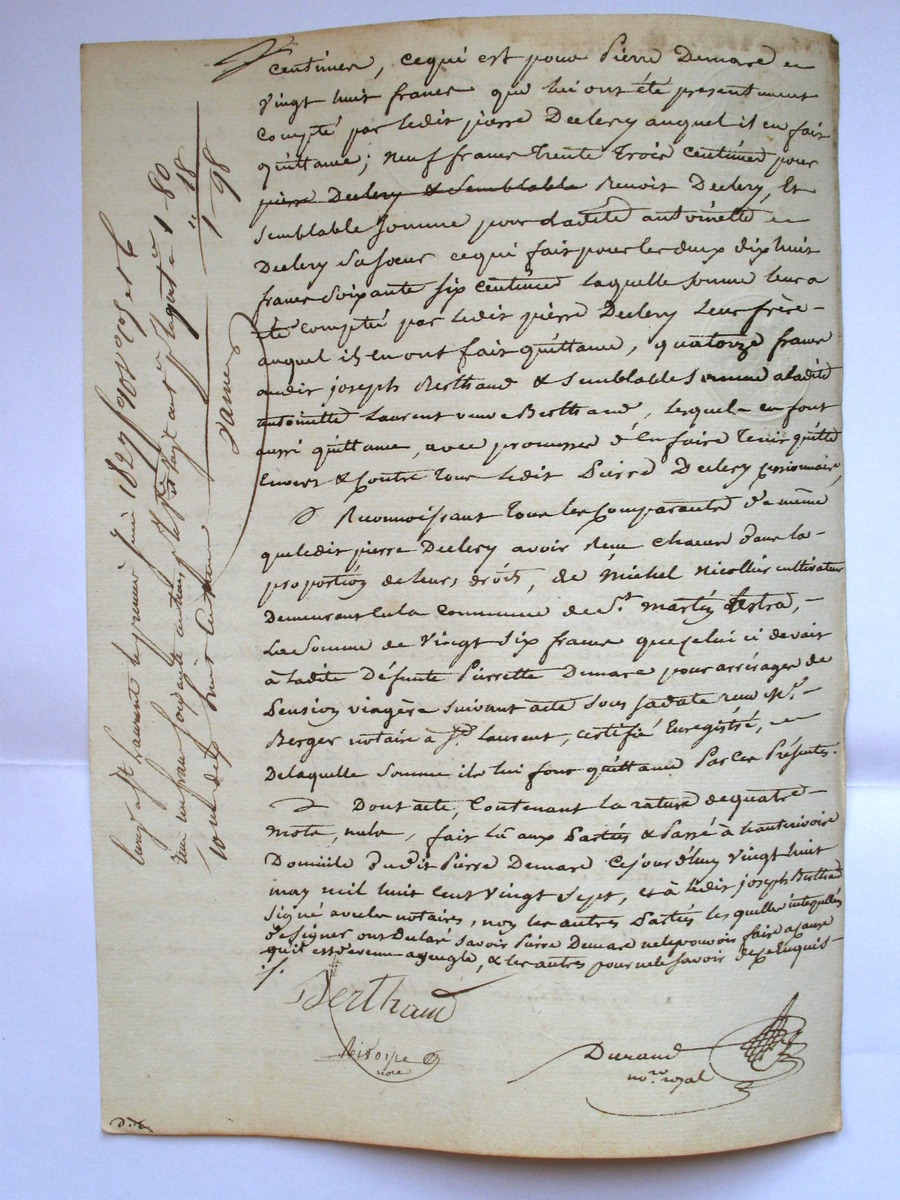 centimes, cequi est pour Pierre Demare
vingt huit francs que lui ont été présentement
compté par ledit pierre Declery auquel il en fait
quittance; neuf francs trente trois centimes pour
pierre Declery & Semblable Benoit Declery, Et
semblable somme pour ladite antoinette
Declery sa soeur cequi fait pour les deux dix huit
francs soixante six centimes laquelle somme leur a
été compté par ledit pierre Declery leur frère
auquel ils en ont fait quittance, quatorze francs
audit joseph Berthaud & semblable somme a ladite
antoinette Laurent veuve Berthaud, lesquels en font
aussi quittance, avec promesse d'en faire tenir quitte
Envers & Contre tous ledit Pierre Declery cessionnaire,
Reconnoissant tous les Comparants de même
que ledit pierre Declery avoir Reçu chacun dans la
proportion de leurs droits, de Michel Nicollier cultivateur
Demeurant en la Commune de St. Martin
La Somme de Vingt six francs que celui ci devait
à ladite Défunte Pierrette Demare pour arrérages de
Pension viagère suivant acte sous sa date reçu Me.
Berger notaire à St. Laurent, certifié Enregistré,
Delaquelle Somme ils lui font quittance Par Ces Présentes.
Dont acte, Contenant la rature de quatre
mots, nuls, fait lû aux Parties & Passé à hauterivoire
Domicile dudit Pierre Demare Cejourd'huy vingt huit
may mil huit cent vingt sept, et à ledit joseph Berthaud
signé avec les notaires, non les autres Parties lesquelles interpellées
de signer ont Déclaré savoir Pierre Demare ne le pouvoir faire a cause
qu'il est devenu aveugle, & les autres pour ne le savoir de ce Enquis
Berthaud
Durand
nore. royal
Enregt. à St Laurent le premier juin 1827
Reçu un franc soixante centimes
10e
dix huit centimes
1-80
18
1-98